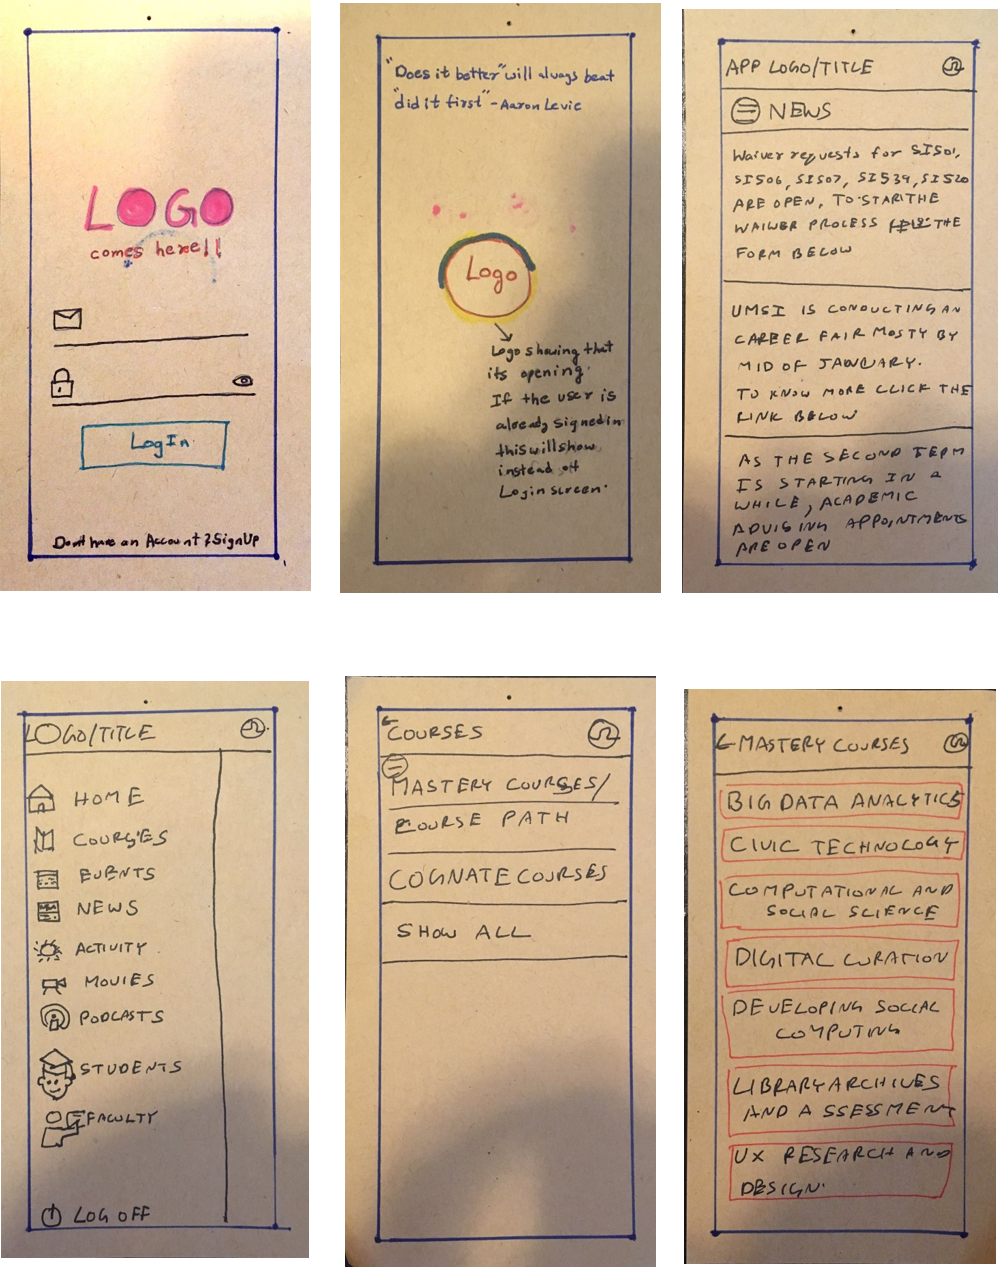 LOGO
comes here!!
LogIn
Don't have an Account? SignUp
"Does it better" will always beat
"did it first" - Aaron Levie
Logo
Logo showing that
its opening.
If the user is
already signed in
this will show
instead off
Login screen.
APP LOGO/TITLE
NEWS
Waiver requests for SI501,
SI506, SI507, SI539, SI520
ARE OPEN, TO START THE
WAIWER PROCESS THE
FORM BELOW
UMSI IS CONDUCTING AN
CAREER FAIR MOSTY BY
MID OF JANUARY.
TO KNOW MORE CLICK THE
LINK BELOW
AS THE SECOND TERM
IS STARTING IN a
WHILE, ACADEMIC
ADVISING APPOINTMENTS
ARE OPEN
LOGO/TITLE
HOME
COURSES
EVENTS
NEWS
ACTIVITY
MOVIES
PODCASTS
STUDENTS
FACULTY
LOG OFF
COURSES
MASTERY COURSES/
COURSE PATH
COGNATE COURSES
SHOW ALL
MASTERY COURSES
BIG DATA ANALYTICS
CIVIC TECHNOLOGY
COMPUTATIONAL AND
SOCIAL SCIENCE
DIGITAL CURATION
DEVELOPING SOCIAL
COMPUTING
LIBRARY ARCHIVES
AND ASSESSMENT
UX RESEARCH AND
DESIGN.